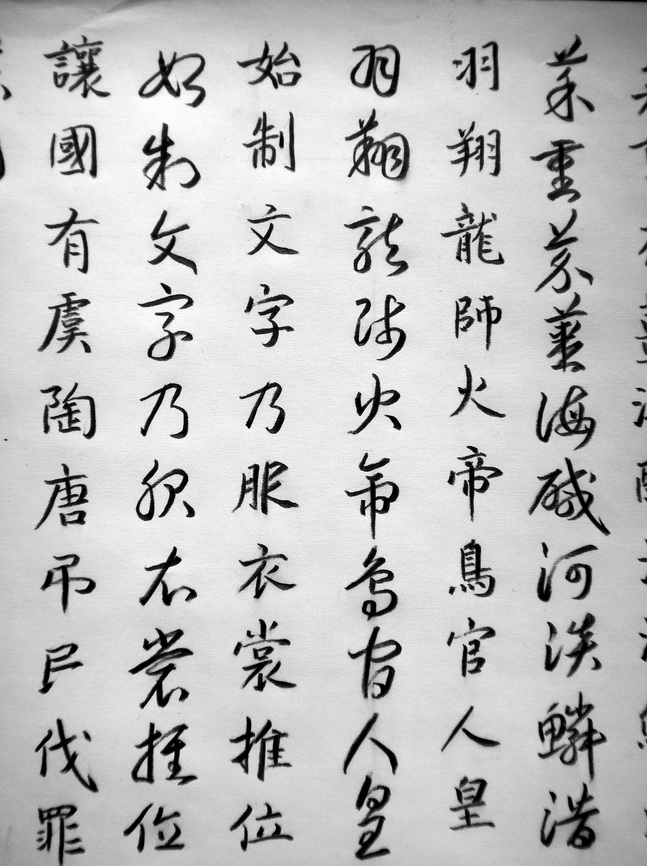 菜重芥薑海醎河淡鱗潛
羽翔龍師火帝鳥官人皇
羽翔龍師火帝鳥官人皇
始制文字乃服衣裳推位
始制文字乃服衣裳推位
讓國有虞陶唐吊民伐罪